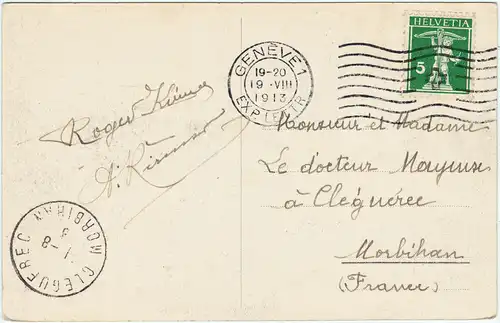 HELVETIA
5
GENÈVE 1
19-20
19 · VIII
1913
EXP. LETTR.
Roger
Monsieur et Madame
Le docteur Mayeux
à Cléguérec
Morbihan
(France)
CLEGUEREC MORBIHAN